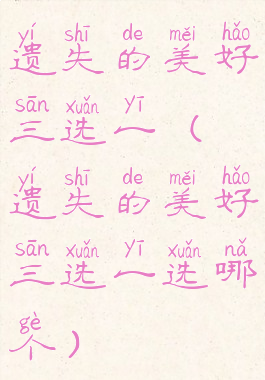 yí shī de měi hǎo
遗失的美好
sān xuǎn yī
三选一（
yí shī de měi hǎo
遗失的美好
sān xuǎn yī xuǎn nǎ
三选一选哪
gè
个）